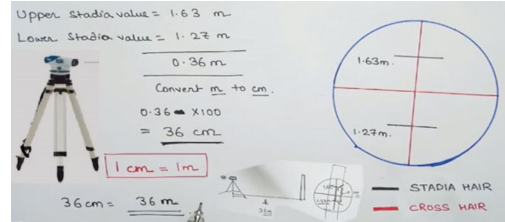 Upper Stadia value = 1.63 m
Lower Stadia value = 1.27 m
0.36 m
Convert m to cm.
0.36 x100
= 36 cm
1 cm = 1m
36 cm = 36 m
1.63m.
1.27m.
STADIA HAIR
CROSS HAIR